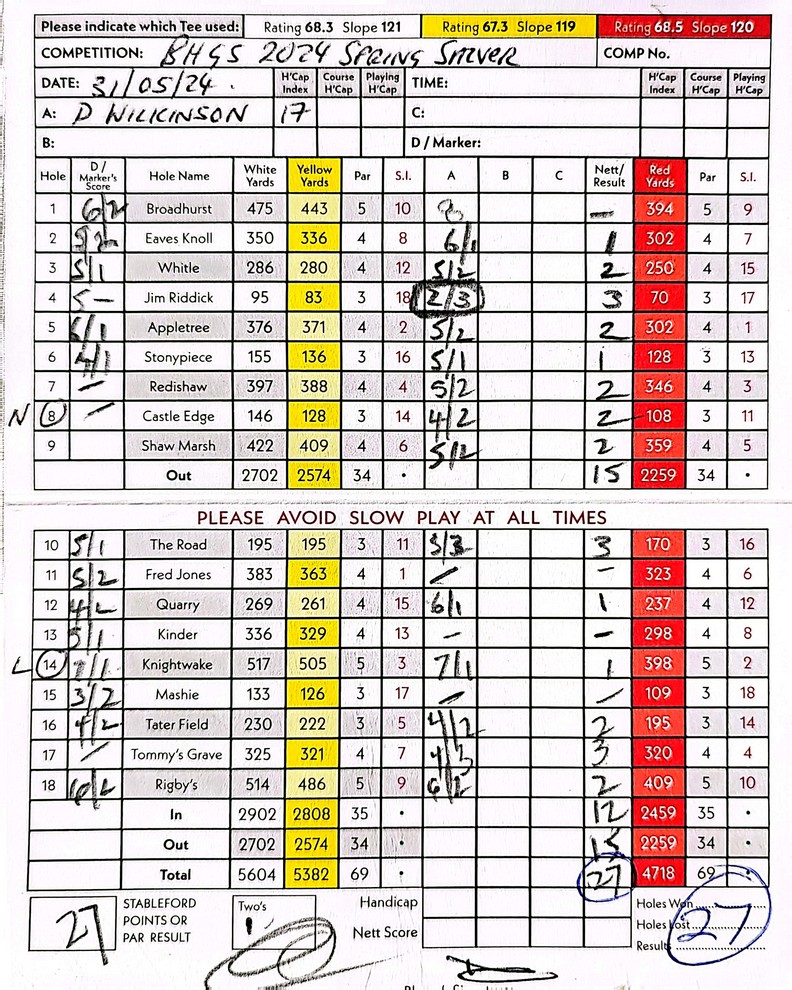 Please indicate which Tee used: Rating 68.3 Slope 121 Rating 67.3 Slope 119 Rating 68.5 Slope 120
COMPETITION: BHGS 2024 SPRING SILVER COMP No.
DATE: 31/05/24. H'Cap Index Course H'Cap Playing H'Cap TIME: H'Cap Index Course H'Cap Playing H'Cap
A: D WILKINSON 17 C:
B: D / Marker:
Hole D / Marker's Score Hole Name White Yards Yellow Yards Par S.I. A B C Nett/ Result Red Yards Par S.I.
1 6/2 Broadhurst 475 443 5 10 8 — 394 5 9
2 5/2 Eaves Knoll 350 336 4 8 6/1 1 302 4 7
3 5/1 Whitle 286 280 4 12 5/2 2 250 4 15
4 5 – Jim Riddick 95 83 3 18 2/3 3 70 3 17
5 6/1 Appletree 376 371 4 2 5/2 2 302 4 1
6 4/1 Stonypiece 155 136 3 16 5/1 1 128 3 13
7 – Redishaw 397 388 4 4 5/2 2 346 4 3
N 8 – Castle Edge 146 128 3 14 4/2 2 108 3 11
9 Shaw Marsh 422 409 4 6 5/2 2 359 4 5
Out 2702 2574 34 • 15 2259 34 •
PLEASE AVOID SLOW PLAY AT ALL TIMES
10 5/1 The Road 195 195 3 11 3/3 3 170 3 16
11 5/2 Fred Jones 383 363 4 1 / – 323 4 6
12 4/2 Quarry 269 261 4 15 6/1 1 237 4 12
13 5/1 Kinder 336 329 4 13 – – 298 4 8
L 14 7/1 Knightwake 517 505 5 3 7/1 1 398 5 2
15 3/2 Mashie 133 126 3 17 / / 109 3 18
16 4/2 Tater Field 230 222 3 5 4/2 2 195 3 14
17 / Tommy's Grave 325 321 4 7 4/3 3 320 4 4
18 6/2 Rigby's 514 486 5 9 6/2 2 409 5 10
In 2902 2808 35 • 12 2459 35 •
Out 2702 2574 34 • 15 2259 34 •
Total 5604 5382 69 • 27 4718 69 •
27 STABLEFORD POINTS OR PAR RESULT Two's 1 Handicap Nett Score Holes Won Holes Lost Result 27